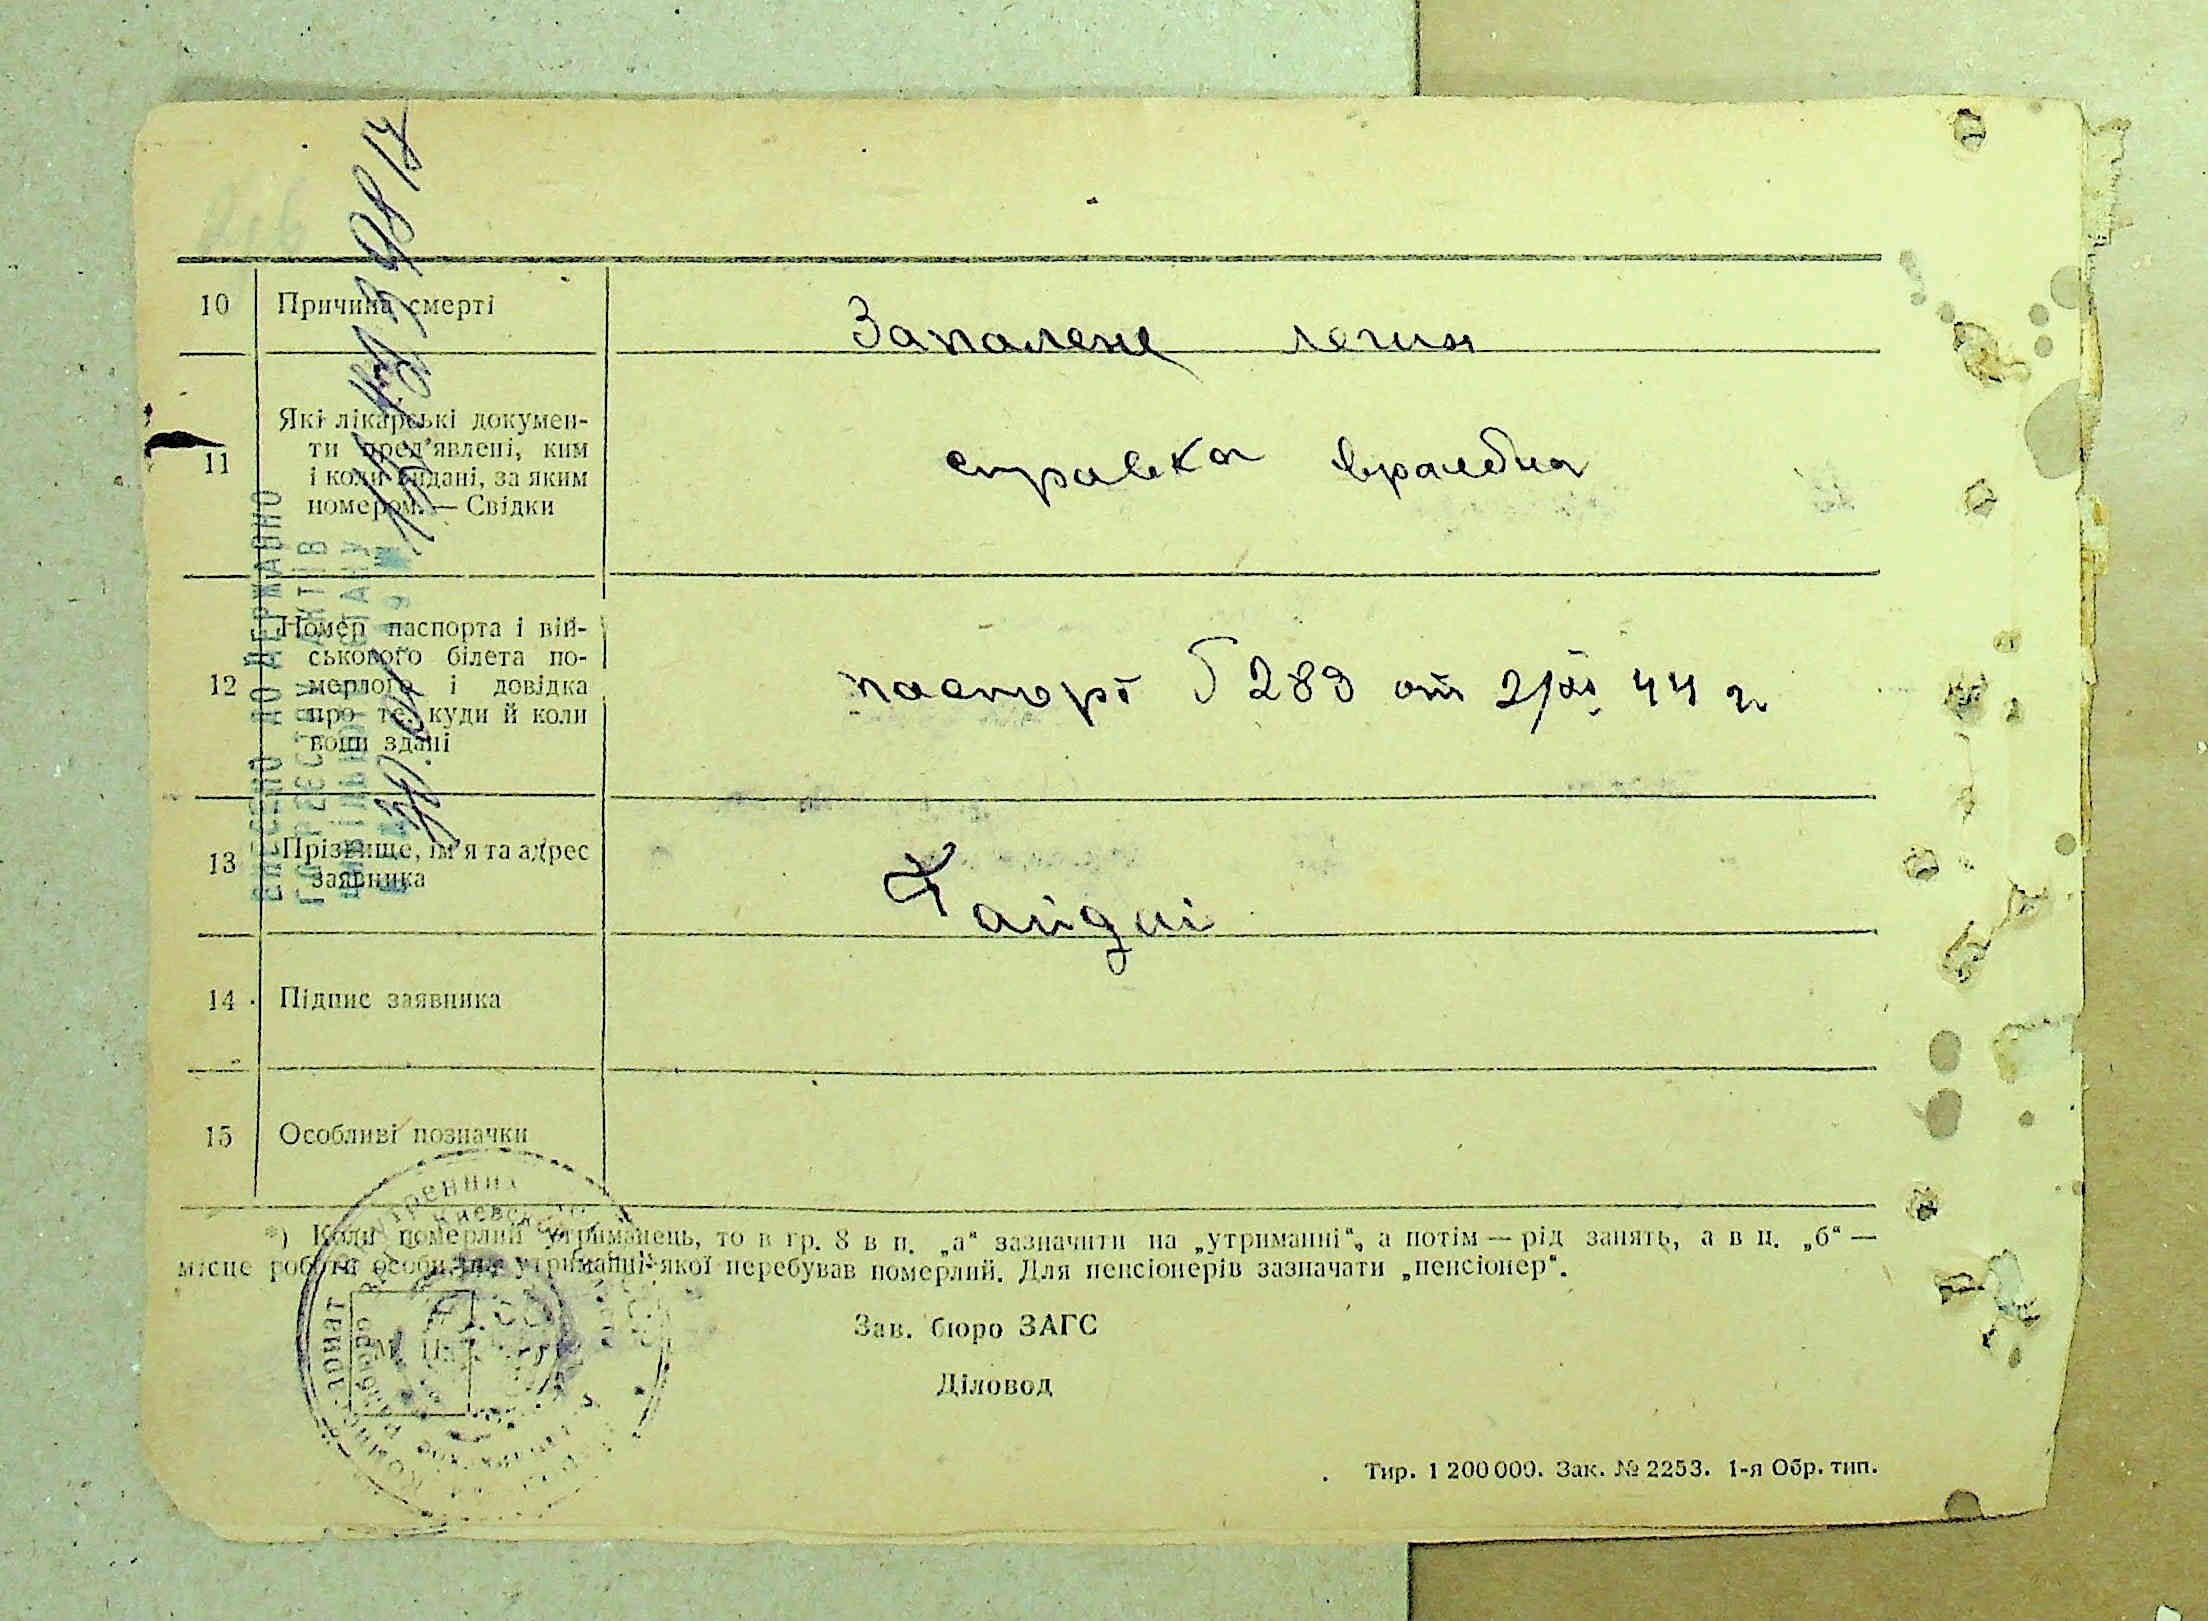 10 Причина смерті Запалене легин
11 Які лікарські докумен-
ти пред'явлені, ким
і коли видані, за яким
номером. — Свідки
справка врачебна
12 Номер паспорта і вій-
ськового білета по-
мерлого і довідка
про те, куди й коли
вони здані
паспорт 289 от 44 г.
13 Прізвище, ім'я та адрес
заявника
14 Підпис заявника
15 Особливі позначки
*) Коли померлий утриманець, то в гр. 8 в п. „а“ зазначити на „утриманні“, а потім — рід занять, а в п. „б“ —
місце роботи особи, на утриманні якої перебував померлий. Для пенсіонерів зазначати „пенсіонер“.
Зав. бюро ЗАГС
Діловод
Тир. 1 200 000. Зак. № 2253. 1-я Обр. тип.
ВНЕСЕНО ДО ДЕРЖАВНО
ГО РЕЄСТРУ АКТІВ
ЦИВІЛЬНОГО СТАНУ